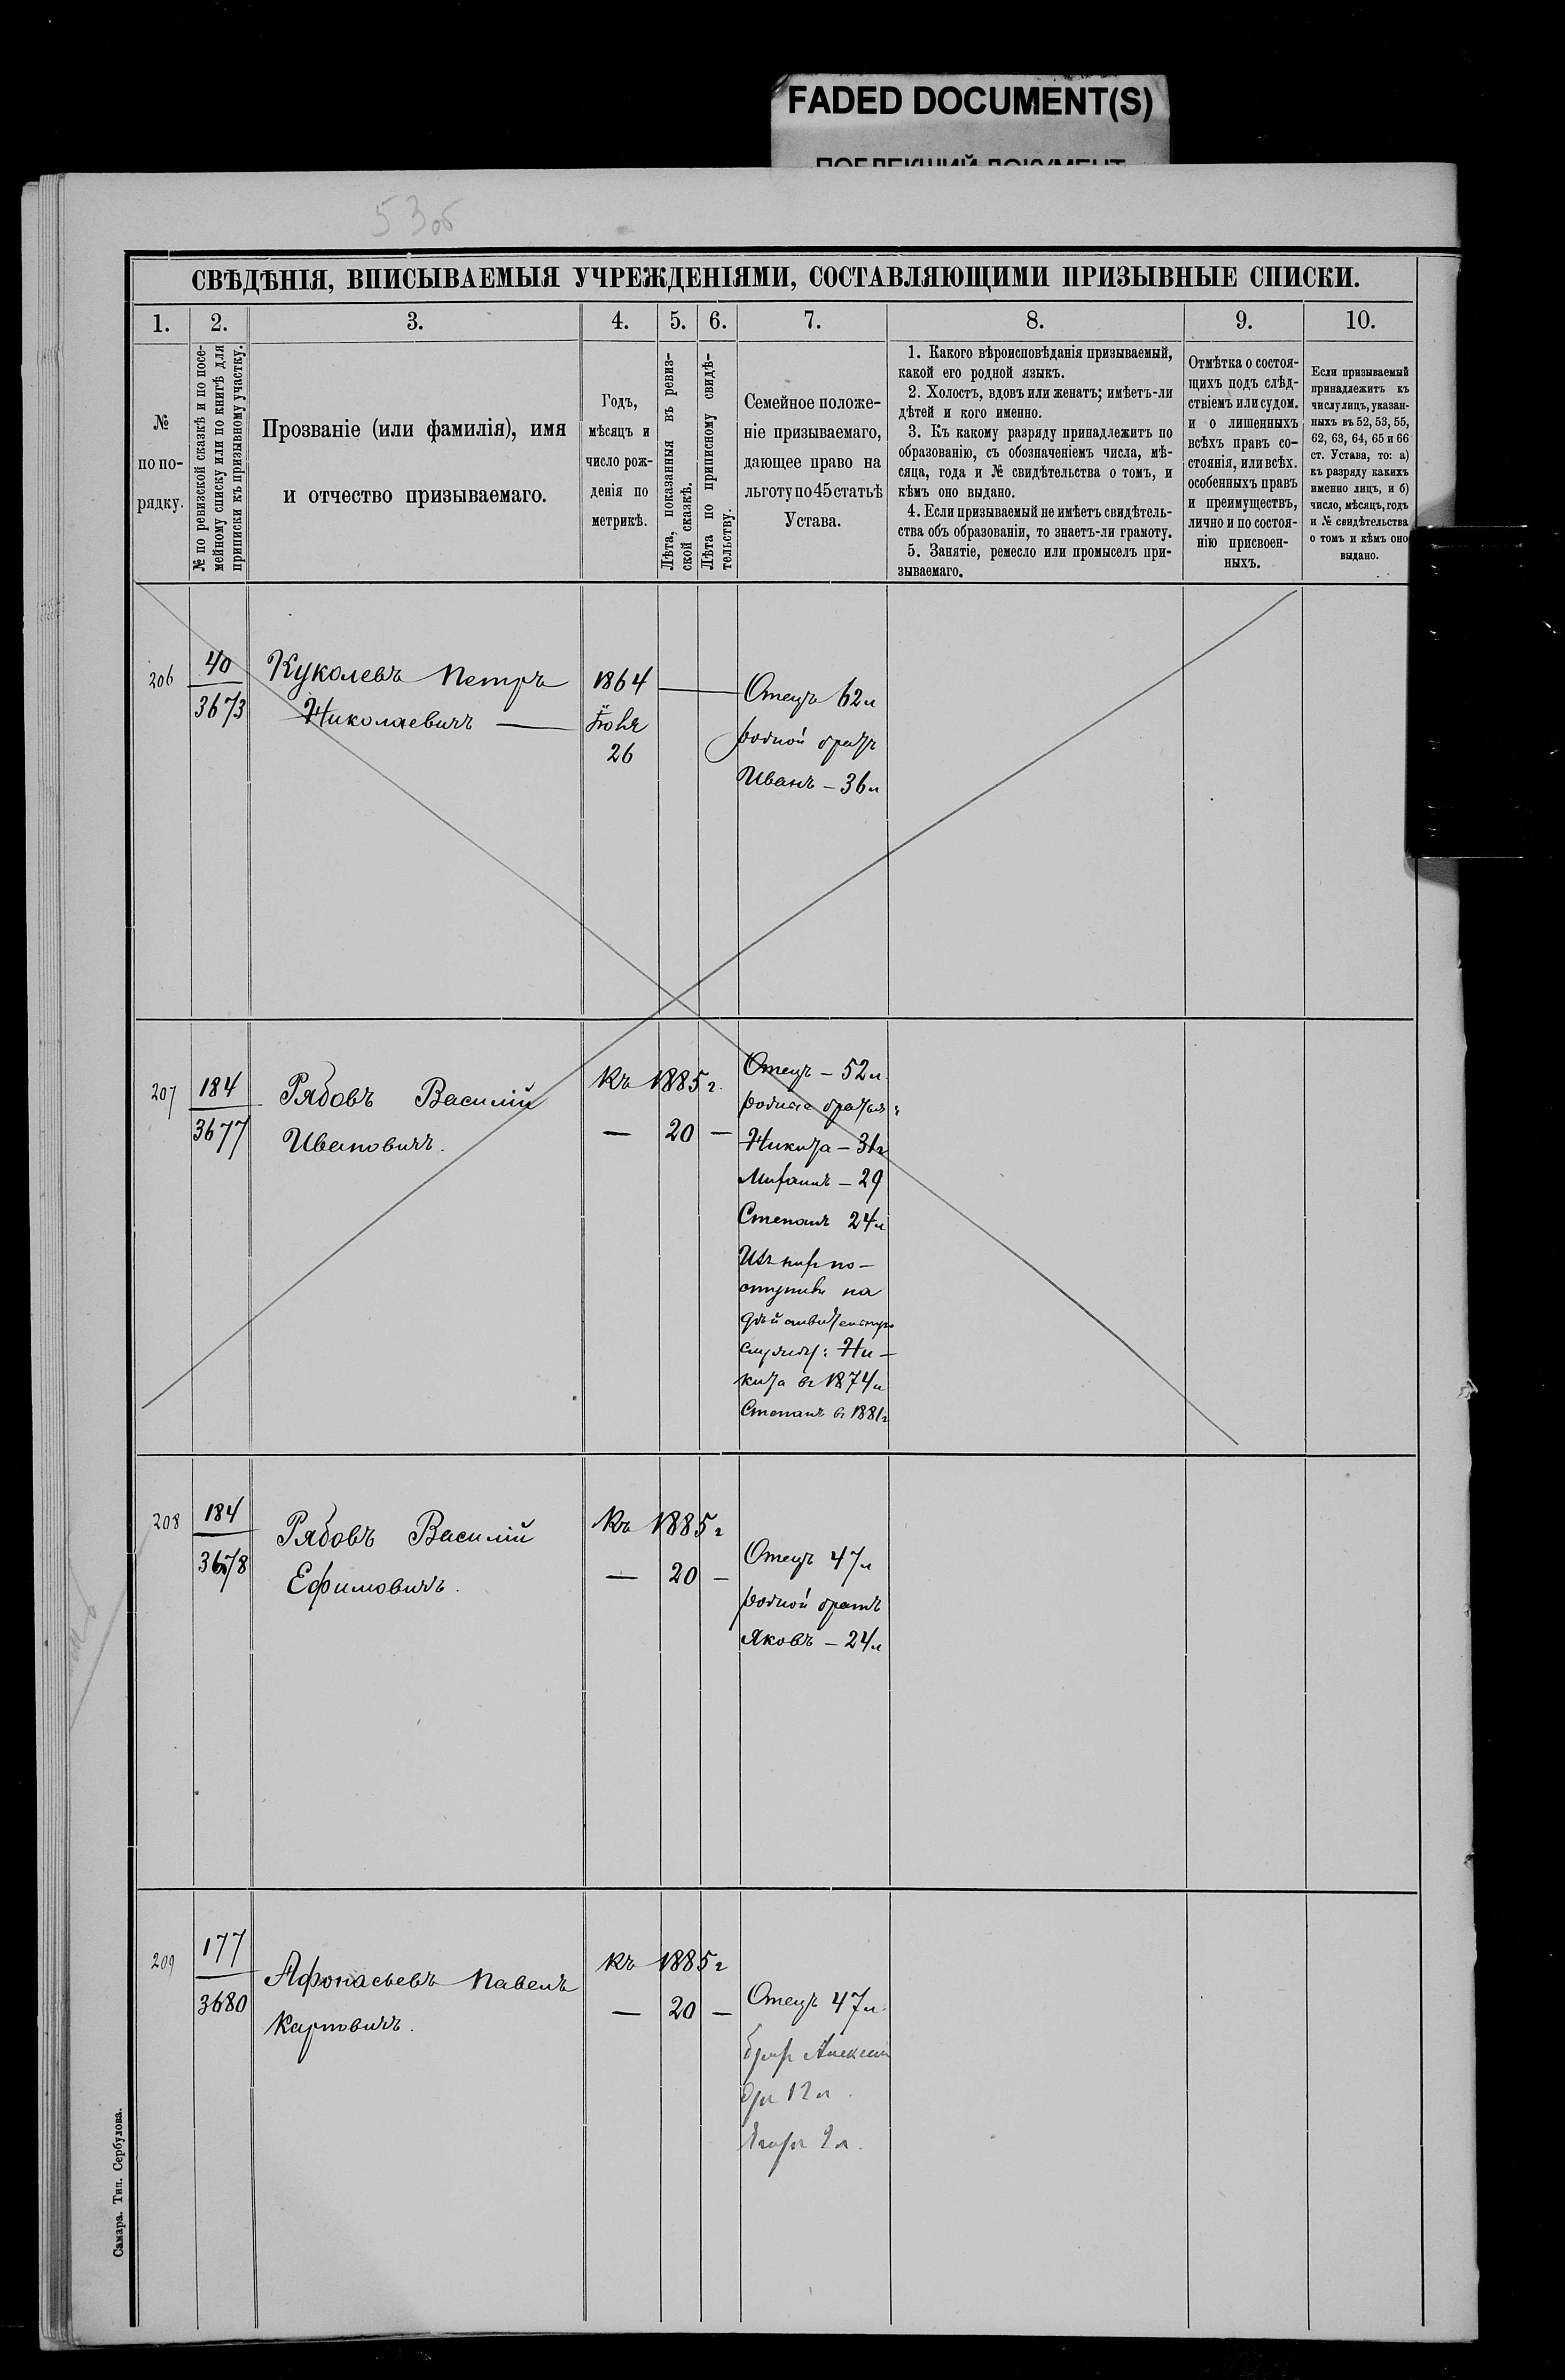 FADED DOCUMENT(S)
53 об
СВѢДѢНІЯ, ВПИСЫВАЕМЫЯ УЧРЕЖДЕНІЯМИ, СОСТАВЛЯЮЩИМИ ПРИЗЫВНЫЕ СПИСКИ.
1. 2. 3. 4. 5. 6. 7. 8. 9. 10.
№
по по-
рядку.
№ по ревизской сказкѣ и по посе-
мейному списку или по книгѣ для
приписки къ призывному участку.
Прозваніе (или фамилія), имя
и отчество призываемаго.
Годъ,
мѣсяцъ и
число рож-
денія по
метрикѣ.
Лѣта, показанныя въ ревиз-
ской сказкѣ.
Лѣта по приписному свидѣ-
тельству.
Семейное положе-
ніе призываемаго,
дающее право на
льготу по 45 статьѣ
Устава.
1. Какого вѣроисповѣданія призываемый,
какой его родной языкъ.
2. Холостъ, вдовъ или женатъ; имѣетъ-ли
дѣтей и кого именно.
3. Къ какому разряду принадлежитъ по
образованію, съ обозначеніемъ числа, мѣ-
сяца, года и № свидѣтельства о томъ, и
кѣмъ оно выдано.
4. Если призываемый не имѣетъ свидѣтель-
ства объ образованіи, то знаетъ-ли грамоту.
5. Занятіе, ремесло или промыселъ при-
зываемаго.
Отмѣтка о состоя-
щихъ подъ слѣд-
ствіемъ или судом.
и о лишенныхъ
всѣхъ правъ со-
стоянія, или всѣх.
особенныхъ правъ
и преимуществъ,
лично и по состоя-
нію присвоен-
ныхъ.
Если призываемый
принадлежитъ къ
числу лицъ, указан-
ныхъ въ 52, 53, 55,
62, 63, 64, 65 и 66
ст. Устава, то: а)
къ разряду какихъ
именно лицъ, и б)
число, мѣсяцъ, годъ
и № свидѣтельства
о томъ и кѣмъ оно
выдано.
206
40
3673
Куколевъ Петръ
Николаевичъ —
1864
26
Отецъ 62 л
родной братъ
Иванъ — 36 л
207
184
3677
Рябовъ Василій
Ивановичъ.
Къ 1885 г.
— 20 —
Отецъ — 52 л.
родные братья:
Никита — 31 г
— 29
Степанъ 24 л
Изъ нихъ по-
ступили на
дѣйствительную
службу: Ни-
кита въ 1874 г
Степанъ въ 1881 г
208
184
3678
Рябовъ Василій
Ефимовичъ.
Къ 1885 г
— 20 —
Отецъ 47 л
родной братъ
Яковъ — 24 л
209
177
3680
Афонасьевъ Павелъ
Карповичъ.
Къ 1885 г
— 20 —
Отецъ 47 л.
братъ Алексан
дръ 12 л.
Самара. Тип. Сербулова.